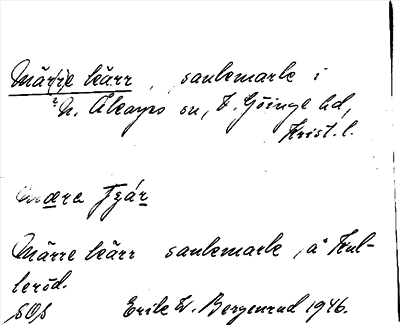 Märrekärr, sankmark i
N. Åkarps sn, V. Göinge hd,
Krist. l.
mære
Märrekärr sankmark, å Kul-
leröd.
SOS Erik W. Bergenrud 1946.